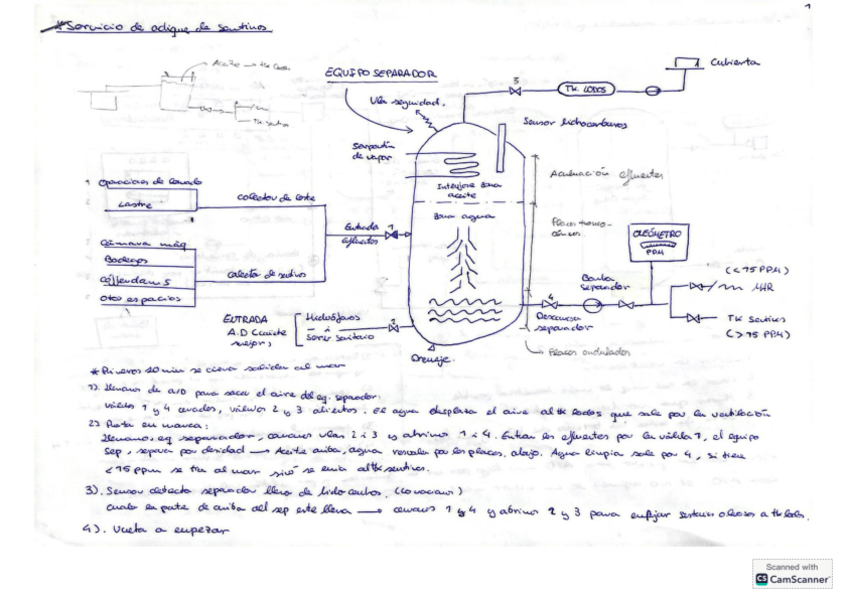 1
*Servicio de achique de sentinas
Aceite → tk lodos
Tk. sentina
EQUIPO SEPARADOR
Vlv seguridad.
3
TK. LODOS
Cubierta
Sensor hidrocarburos
Serpentín
de vapor
Interfase zona
aceite
Acumulación efluentes
zona agua
1 Operaciones de lavado
2 Lastre
colector de lastre
Entrada
efluentes
1
Cámara máq
Bodegas
cófferdams
otros espacios
colector de sentinas
ENTRADA
A.D (caliente
mejor)
Hidróforos
serv. sanitario
2
Drenaje.
OLEÓMETRO
PPM
Bomba
separador
4
Descarga
separador
(<15 PPM)
MAR
TK Sentinas
(>15 PPM)
Placas onduladas
* Primeros 20 min se cierra salida al mar
1). Llenamos de A/D para sacar el aire del eq. separador.
válvulas 1 y 4 cerradas, válvulas 2 y 3 abiertas. El agua desplaza el aire al tk lodos que sale por la ventilación
2) Puesta en marcha:
Llenamos eq separador, cerramos vlvs 2 i 3 y abrimos 1 i 4. Entran los efluentes por la válvula 1, el equipo
sep, separa por densidad → Aceite arriba, agua por las placas, abajo. Agua limpia sale por 4, si tiene
<15 ppm se tira al mar sino se envia al tk sentinas.
3). Sensor detecta separador lleno de hidrocarburos. (lo vaciamos)
cuando la parte de arriba del sep este llena → cerramos 1 y 4 y abrimos 2 y 3 para empujar sentinas oleosas a tk lodos.
4). Vuelta a empezar
Scanned with
CS CamScanner